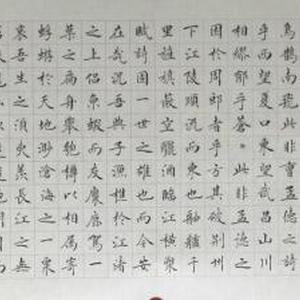 烏鵲南飛此非曹孟德之詩
乎西望夏口東望武昌山川
相繆鬱乎蒼〻此非孟德之
困於周郎者乎方其破荊州
下江陵順流而東也舳艫千
里旌旗蔽空釃酒臨江橫槊
賦詩固一世之雄也而今安
在哉況吾與子漁樵於江渚
之上侶魚蝦而友麋鹿駕一
葉之扁舟舉匏樽以相屬寄
蜉蝣於天地渺滄海之一粟
哀吾生之須臾羨長江之無